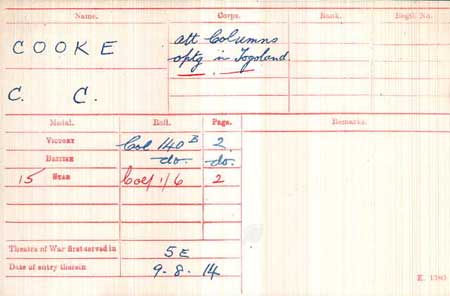 Name. Corps. Rank. Regtl. No.
COOKE att Columns
optg in Togoland.
C. C.
Medal. Roll. Page. Remarks.
VICTORY Col 140 B 2.
BRITISH do. do.
15 STAR Col 1/6 2
Theatre of War first served in 5E
Date of entry therein 9-8-14
K. 1380